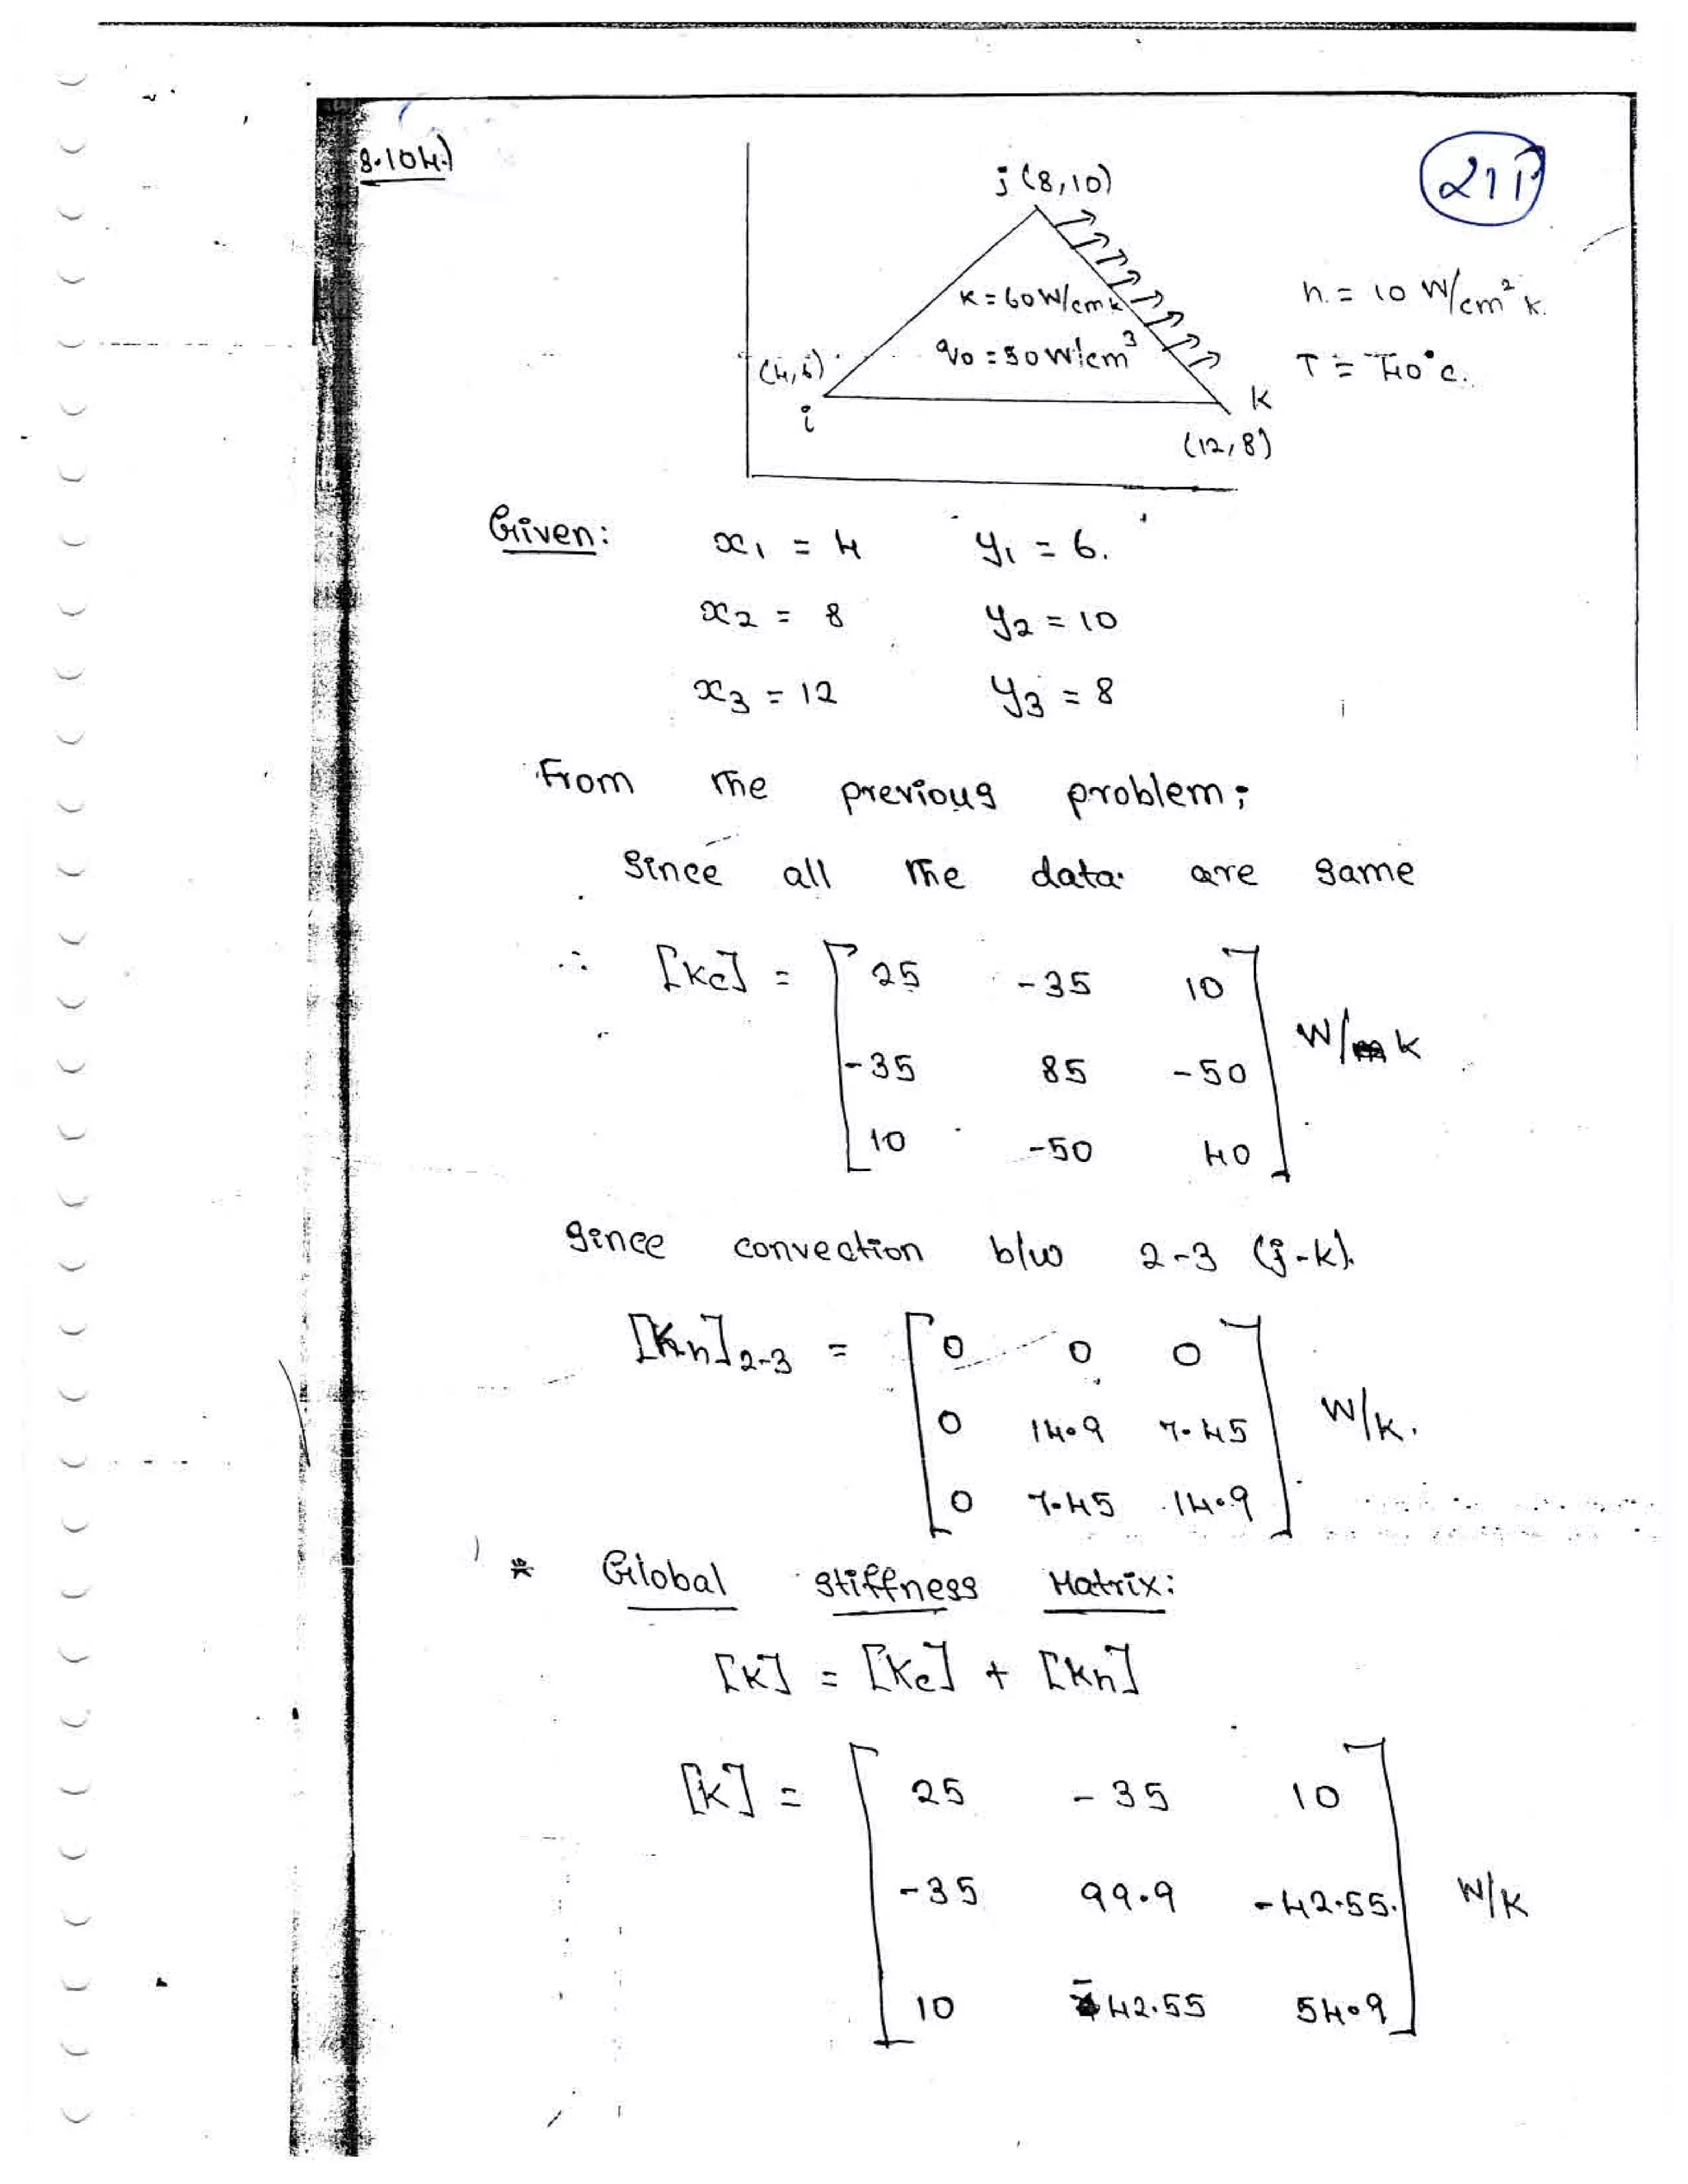 8.104.)
211
j (8,10)
K = 60 W/cmk
q0 = 50 W/cm³
h = 10 W/cm² k.
T = 40°c.
(4,6)
i
k
(12,8)
Given: x1 = 4 y1 = 6.
x2 = 8 y2 = 10
x3 = 12 y3 = 8
From the previous problem;
Since all the data are same
∴ [kc] = [ 25 -35 10
-35 85 -50
10 -50 40 ] W/k
Since convection b/w 2-3 (j-k).
[Kh]2-3 = [ 0 0 0
0 14.9 7.45
0 7.45 14.9 ] W/k.
* Global stiffness Matrix:
[K] = [Kc] + [Kh]
[K] = [ 25 -35 10
-35 99.9 -42.55.
10 -42.55 54.9 ] W/K